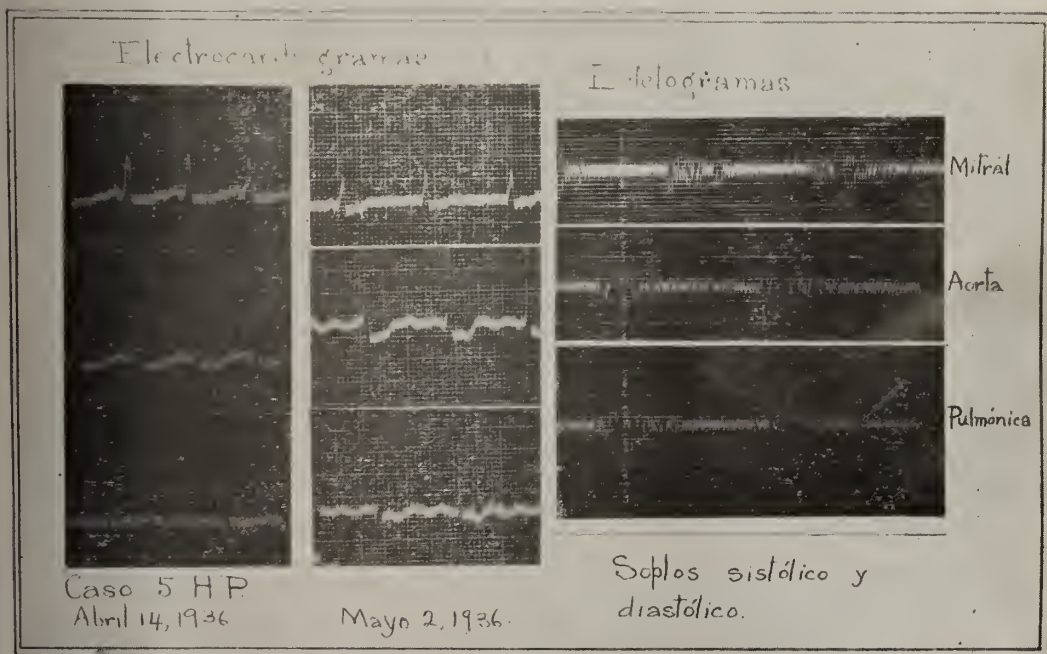 Electrocardiogramas
Mitral
Aorta
Pulmónica
Caso 5 H P.
Abril 14, 1936
Mayo 2, 1936.
Soplos sistólico y
diastólico.